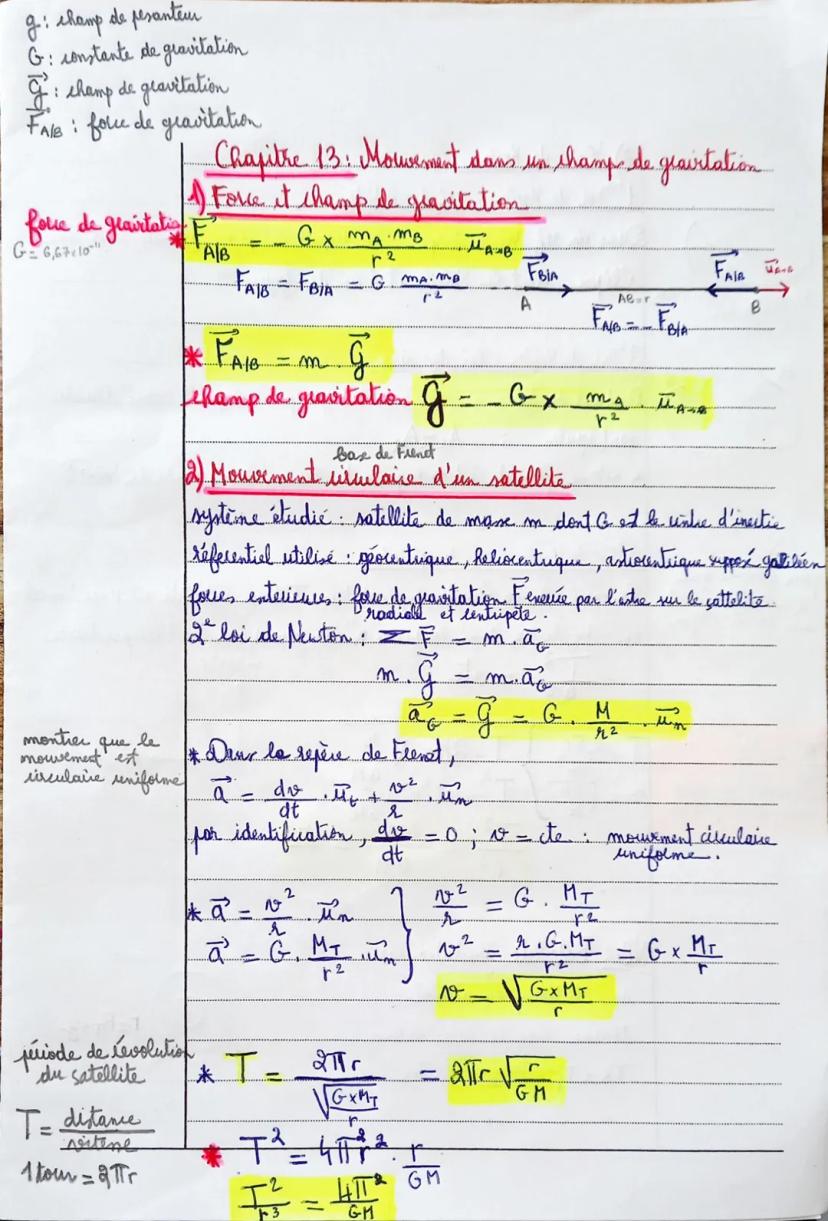 g : champ de pesanteur
G : constante de gravitation
𝒢⃗ : champ de gravitation
F⃗A/B : force de gravitation
Chapitre 13 : Mouvement dans un champ de gravitation
1) Force et champ de gravitation
force de gravitatio
G = 6,67×10⁻¹¹
* F⃗A/B = - G × mA . mB / r² . u⃗A→B
FA/B = FB/A = G mA . mB / r²
F⃗B/A F⃗A/B u⃗A→B
A AB = r B
F⃗A/B = - F⃗B/A
* F⃗A/B = m 𝒢⃗
champ de gravitation 𝒢⃗ = - G × mA / r² . u⃗A→B
base de Frenet
2) Mouvement circulaire d'un satellite
système étudié : satellite de masse m dont G est le centre d'inertie
référentiel utilisé : géocentrique, Héliocentrique, astrocentrique supposé galiléen
forces exterieures : force de gravitation F⃗ exercée par l'astre sur le sattelite
radiale et centripète.
2e loi de Newton : Σ F⃗ = m . a⃗G
m . 𝒢⃗ = m . a⃗G
a⃗G = 𝒢⃗ = G . M / r² . u⃗n
montrer que le
mouvement est
circulaire uniforme
* Dans la repère de Frenet,
a⃗ = dv/dt . u⃗t + v²/r . u⃗n
par identification, dv/dt = 0 ; v = cte : mouvement circulaire
uniforme.
* a⃗ = v²/r . u⃗n } v²/r = G . MT / r²
a⃗ = G . MT / r² . u⃗n } v² = r . G . MT / r² = G × MT / r
v = √(G × MT / r)
période de révolution
du satellite
* T = 2πr / √(G × MT / r) = 2πr √(r / GM)
T = distance / vitesse
1 tour = 2πr
* T² = 4π²r² . r / GM
T² / r³ = 4π² / GM